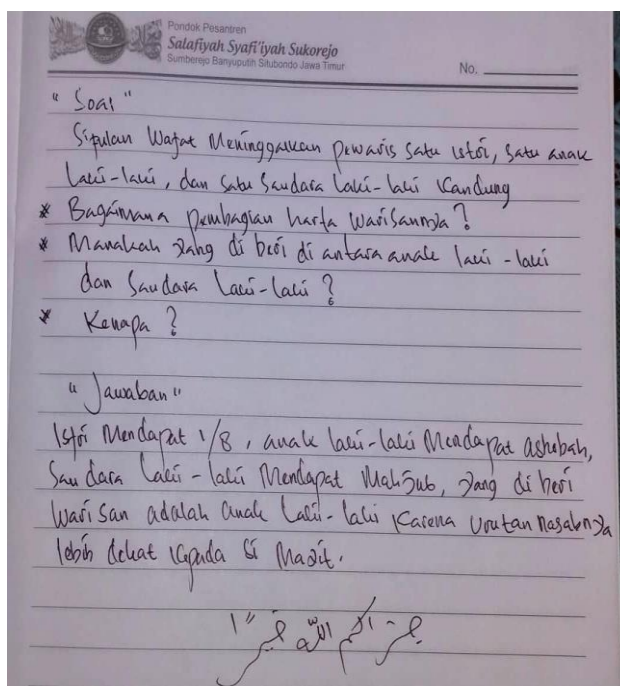 Pondok Pesantren
Salafiyah Syafi'iyah Sukorejo
Sumberejo Banyuputih Situbondo Jawa Timur
No.
"Soal"
Sifulan Wafat Meninggalkan pewaris satu istri, satu anak
Laki-laki, dan satu Saudara laki-laki Kandung
* Bagaimana pembagian harta warisannya?
* Manakah yang di beri di antara anak laki-laki
dan Saudara laki-laki?
* Kenapa?
"Jawaban"
Istri Mendapat 1/8, anak laki-laki Mendapat ashobah,
Saudara Laki-laki Mendapat Mahjub, yang di beri
Warisan adalah anak Laki-laki Karena urutan nasabnya
lebih dekat kepada Si Mayit.
جزاكم الله خيرا